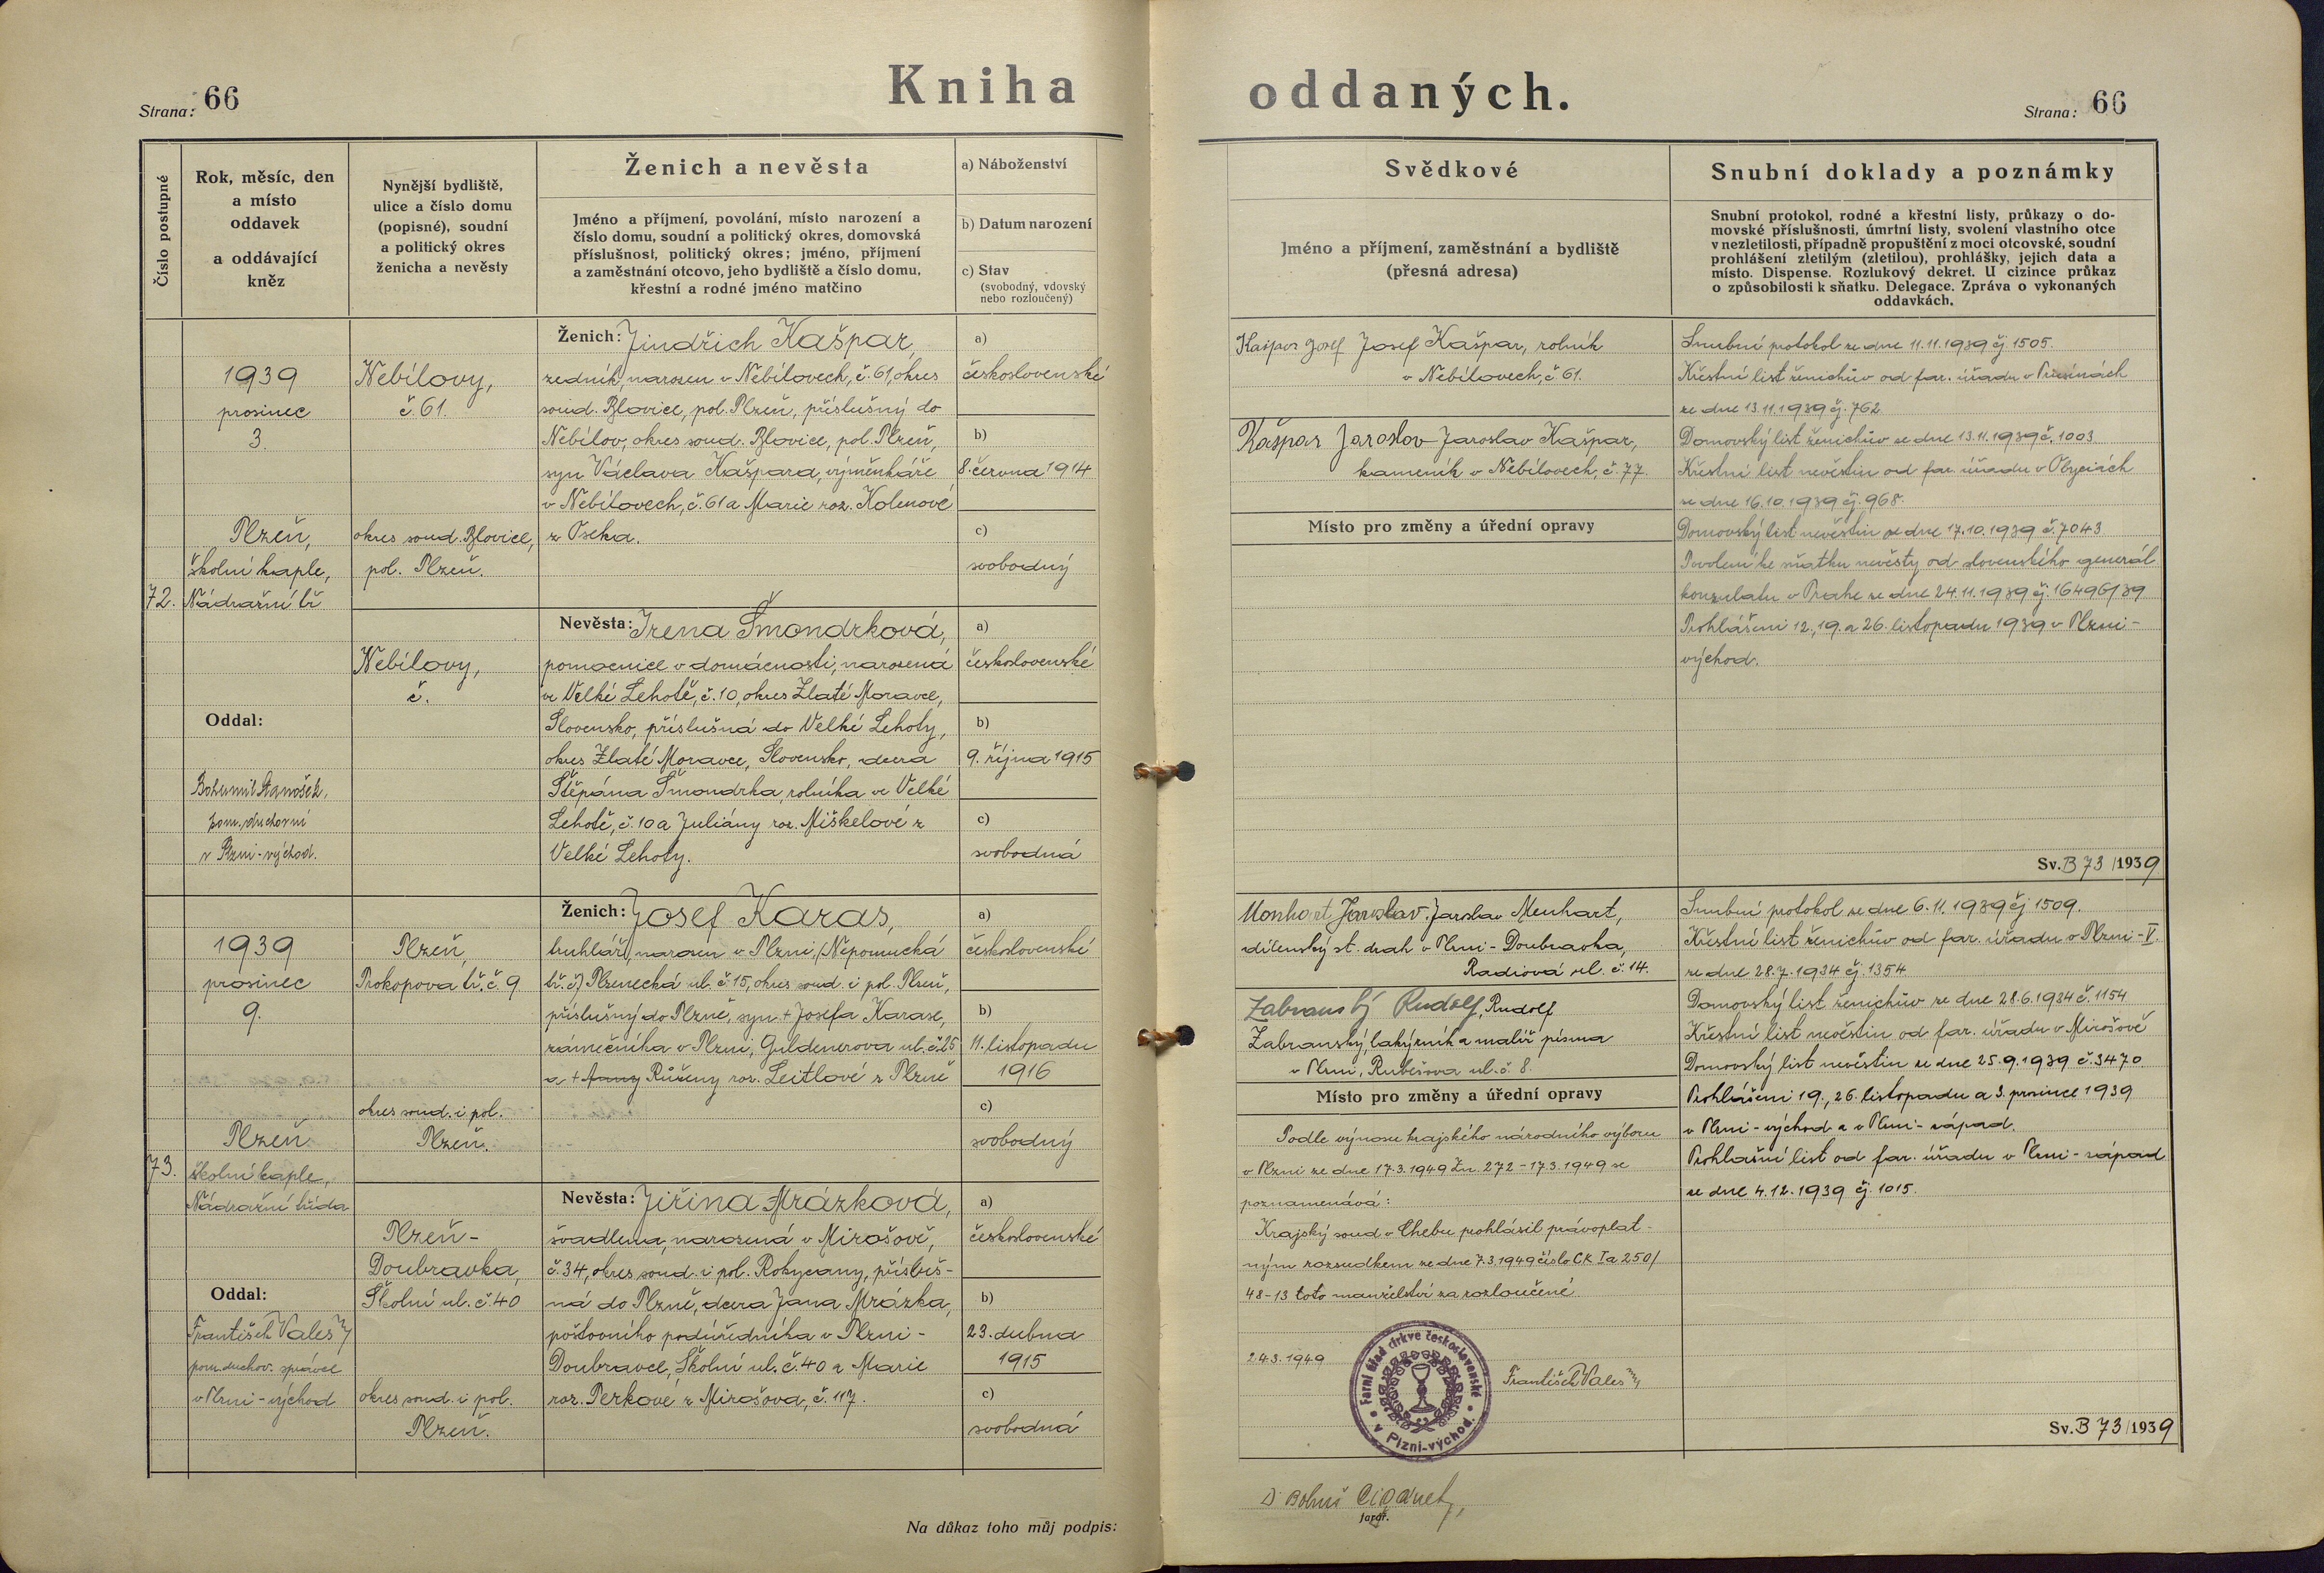 Strana: 66
Kniha oddaných.
Strana: 66
Číslo postupné
Rok, měsíc, den
a místo
oddavek
a oddávající
kněz
Nynější bydliště,
ulice a číslo domu
(popisné), soudní
a politický okres
ženicha a nevěsty
Ženich a nevěsta
Jméno a příjmení, povolání, místo narození a
číslo domu, soudní a politický okres, domovská
příslušnost, politický okres; jméno, příjmení
a zaměstnání otcovo, jeho bydliště a číslo domu,
křestní a rodné jméno matčino
a) Náboženství
b) Datum narození
c) Stav
(svobodný, vdovský
nebo rozloučený)
Svědkové
Jméno a příjmení, zaměstnání a bydliště
(přesná adresa)
Snubní doklady a poznámky
Snubní protokol, rodné a křestní listy, průkazy o do-
movské příslušnosti, úmrtní listy, svolení vlastního otce
v nezletilosti, případně propuštění z moci otcovské, soudní
prohlášení zletilým (zletilou), prohlášky, jejich data a
místo. Dispense. Rozlukový dekret. U cizince průkaz
o způsobilosti k sňatku. Delegace. Zpráva o vykonaných
oddavkách.
72.
1939
prosinec
3.
Plzeň,
školní kaple,
Nádražní tř.
Oddal:
Bohumil Stanošek,
pom. duchovní
v Plzni-východ.
Nebílovy,
č. 61.
okres soud. Blovice,
pol. Plzeň.
Nebílovy,
č.
Ženich: Jindřich Kašpar,
zedník, narozen v Nebílovech, č. 61, okres
soud. Blovice, pol. Plzeň, příslušný do
Nebílov, okres soud. Blovice, pol. Plzeň,
syn Václava Kašpara, výměnkáře
v Nebílovech, č. 61 a Marie roz. Kolenové
z Oseka.
Nevěsta: Irena Šmondrková,
pomocnice v domácnosti, narozená
ve Velké Lehotě, č. 10, okres Zlaté Moravce,
Slovensko, příslušná do Velké Lehoty,
okres Zlaté Moravce, Slovensko, dcera
Štěpána Šmondrka, rolníka ve Velké
Lehotě, č. 10 a Juliány roz. Miškelové z
Velké Lehoty.
a)
československé
b)
8. června 1914
c)
svobodný
a)
československé
b)
9. října 1915
c)
svobodná
Kašpar Josef Josef Kašpar, rolník
v Nebílovech, č. 61.
Kašpar Jaroslov Jaroslav Kašpar,
kameník v Nebílovech, č. 77.
Místo pro změny a úřední opravy
Snubní protokol ze dne 11.11.1939 čj. 1505.
Křestní list ženichův od far. úřadu v Prusinách
ze dne 13.11.1939 čj. 762
Domovský list ženichův ze dne 13.11.1939 č. 1003
Křestní list nevěstin od far. úřadu v
ze dne 16.10.1939 čj. 968.
Domovský list nevěstin ze dne 17.10.1939 č. 7043
Povolení ke sňatku nevěsty od slovenského generál.
konzulatu v Praze ze dne 24.11.1939 čj. 16496/39
Prohlášeni 12., 19. a 26. listopadu 1939 v Plzni-
východ.
Sv. B 73/1939
73.
1939
prosinec
9.
Plzeň
školní kaple,
Nádražní třída
Oddal:
František Vales
pom. duchov. správce
v Plzni-východ
Plzeň,
Prokopova tř. č. 9
okres soud. i pol.
Plzeň.
Plzeň-
Doubravka,
Školní ul. č. 40
okres soud. i pol.
Plzeň.
Ženich: Josef Karas,
truhlář, narozen v Plzni, (Nepomucká
tř. č) Plzenecká ul. č. 15, okres soud. i pol. Plzeň,
příslušný do Plzně, syn + Josefa Karase,
zámečníka v Plzni, Guldenerova ul. č. 25
a + Růženy roz. Leitlové z Plzně
Nevěsta: Jiřina Mrázková,
švadlena, narozená v Mirošově,
č. 34, okres soud. i pol. Rokycany, přísluš-
ná do Plzně, dcera Jana Mrázka,
poštovního podúředníka v Plzni-
Doubravce, Školní ul. č. 40 a Marie
roz. Perkové z Mirošova, č. 117.
a)
československé
b)
11. listopadu
1916
c)
svobodný
a)
československé
b)
23. dubna
1915
c)
svobodná
Menhart Jaroslav. Jaroslav Menhart,
dílenský st. drah v Plzni-Doubravka,
Radiová ul. č. 14.
Zabranský Rudolf, Rudolf
Zabranský, lakýrník a malíř písma
v Plzni, Rubešova ul. č. 8.
Místo pro změny a úřední opravy
Podle výnosu krajského národního výboru
v Plzni ze dne 17.3.1949 Zn. 272-17.3.1949 se
poznamenává:
Krajský soud v Chebu prohlásil právoplat-
ným rozsudkem ze dne 7.3.1949 číslo CK Ia 250/
48-13 toto manželství za rozloučené.
24.3.1949
František Vales
Farní úřad církve československé
v Plzni-východ.
Snubní protokol ze dne 6.11.1939 čj. 1509.
Křestní list ženichův od far. úřadu v Plzni-V.
ze dne 28.7.1934 čj. 1354
Domovský list ženichův ze dne 28.6.1934 č. 1154
Křestní list nevěstin od far. úřadu v Mirošově
Domovský list nevěstin ze dne 25.9.1939 č. 3470
Prohlášeni 19., 26. listopadu a 3. prosince 1939
v Plzni-východ a v Plzni-západ.
Prohlašní list od far. úřadu v Plzni-západ
ze dne 4.12.1939 čj. 1015.
Sv. B 73/1939
Na důkaz toho můj podpis:
farář.